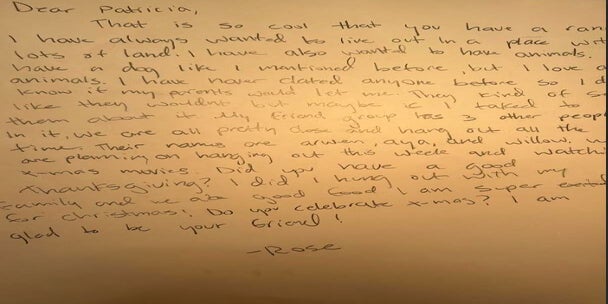 Dear Patricia,
That is so cool that you have a ran
I have always wanted to live out in a place wit
lots of land. I have also wanted to have animals.
have a dog like I mentioned before, but I love a
animals. I have never dated anyone before so I d
know if my parents would let me. They kind of s
like they wouldnt but maybe if I talked to
them about it. My friend group has 3 other peop
in it, we are all pretty close and hang out all the
time. Their names are arwan, aya, and willow, w
are planning on hanging out this week and watchi
x-mas movies. Did you have a good
Thanksgiving? I did I hung out with my
family and we ate good food I am super excite
for christmas! Do you celebrate x-mas? I am
glad to be your friend!
-Rose